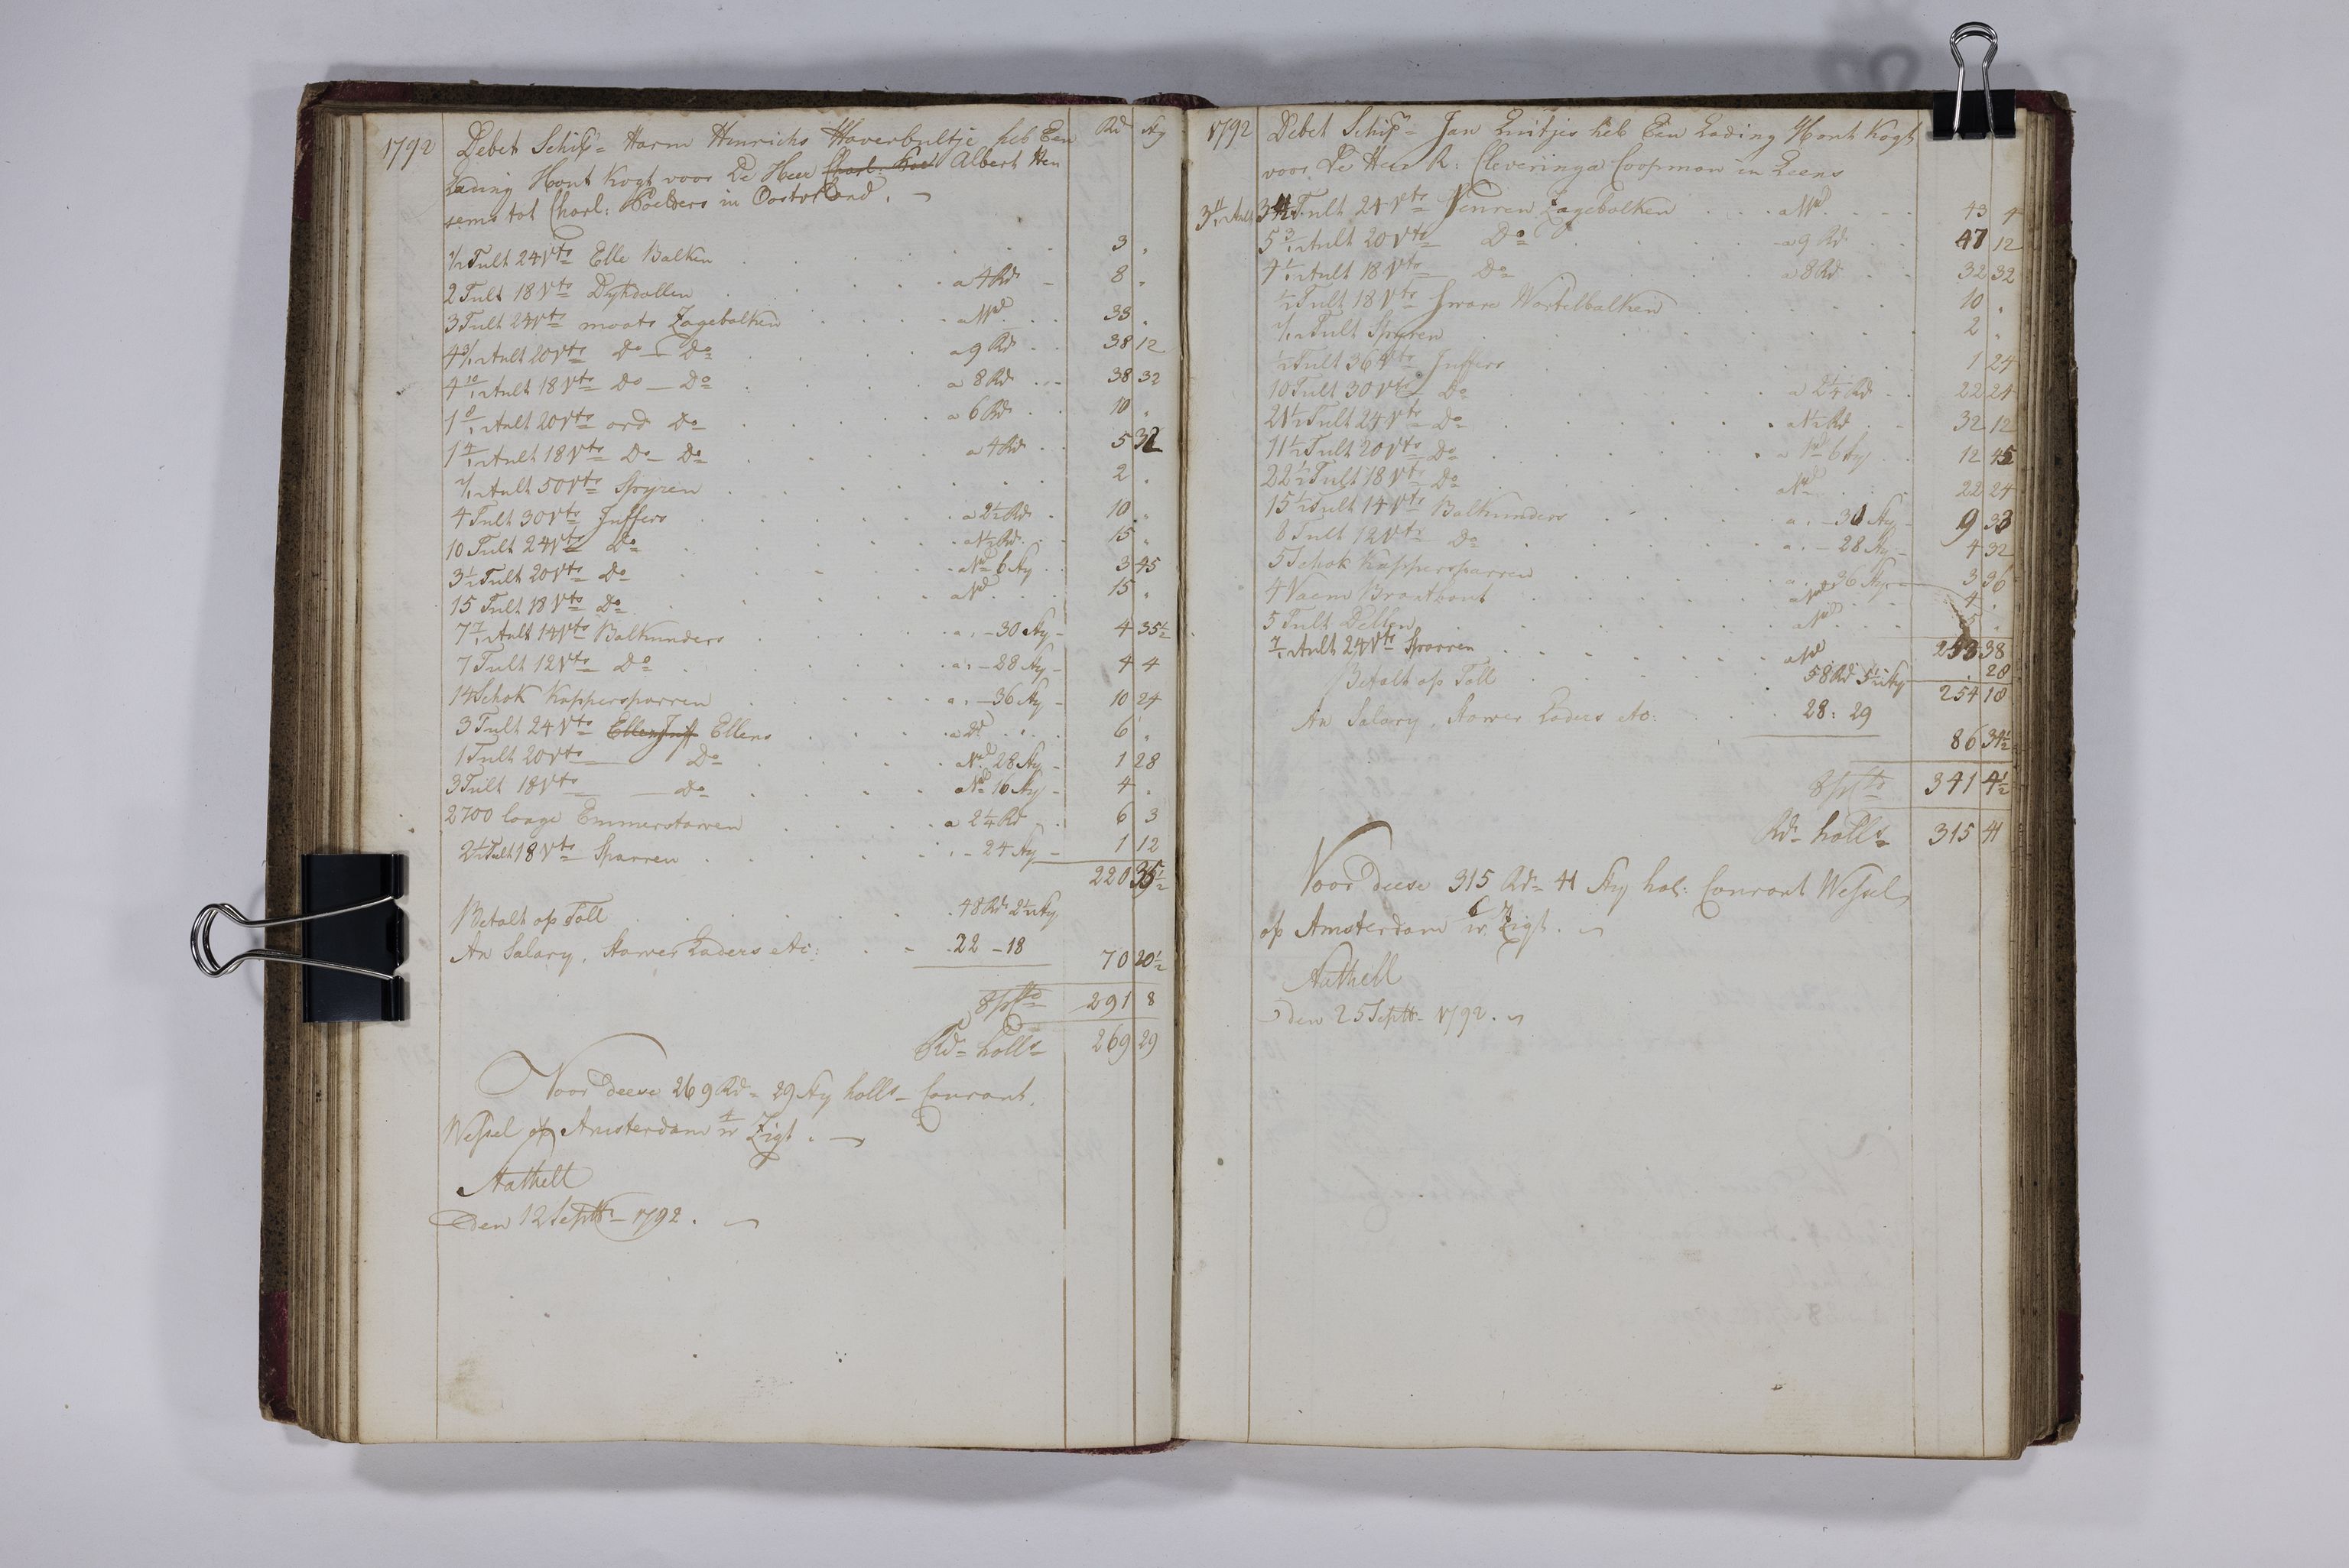 1792 Debet Schip= Harm Hinrichs Haverbultje heb Een Rd Sty
Lading Hout Kogt voor De Heer Charl: Koel Albert Hen
sems tot Charl: Poelders in Oosterland.
1/2 Tult 24 Vts Elle Balken 3 .
2 Tult 18 Vts Dykdollen a 4 Rd 8 .
3 Tult 24 Vts moats Zagebalken a 11 33 .
4 3/12 Tult 20 Vts Do Do a 9 Rd 38 12
4 10/12 Tult 18 Vts Do Do a 8 Rd 38 32
1 8/12 Tult 20 Vts ord Do a 6 Rd 10 .
1 4/12 Tult 18 Vts Do Do a 4 Rd 5 32
1/12 Tult 50 Vts Spyren 2 .
4 Tult 30 Vts Juffers a 2 1/2 Rd 10 .
10 Tult 24 Vts Do a 1 1/2 Rd 15 .
3 1/2 Tult 20 Vts Do a 1 Rd 6 Sty 3 45
15 Tult 18 Vts Do a 1 Rd 15 .
7 7/12 Tult 14 Vts Balkunders a . - 30 Sty 4 35 1/2
7 Tult 12 Vts Do a . - 28 Sty 4 4
14 Schok Kappersparren a . - 36 Sty 10 24
3 Tult 24 Vts Ellen Juf Ellens a 2 Rd 6 .
1 Tult 20 Vts Do a 1 Rd 28 Sty 1 28
3 Tult 18 Vts Do a 1 Rd 16 Sty 4 .
2700 laage Emmerstaven a 2 1/4 Rd 6 3
2 1/2 Tult 18 Vts Sparren . - 24 Sty 1 12
220 35 1/2
Betalt op Toll 48 Rd 2 1/2 Sty
An Salary, Stower Laders etc: 22 - 18 70 20 1/2
8 p Cto 291 8
Rd= holls 269 29
Voor deese 269 Rd= 29 Sty holls= Courant
Wessel op Amsterdam Zigt.
Stathelt
Den 12 Septtr= 1792.
1792 Debet Schip= Jan Luitjes heb Een Lading Hout Kogt
voor De Heer R: Cleveringa Coopman in Leens
3 11/12 Tult 24 Vts Venren Zagebalken a 11 Rd 43 4
5 3/12 Tult 20 Vts Do a 9 Rd 47 12
4 1/12 Tult 18 Vts Do a 8 Rd 32 32
1/2 Tult 18 Vts Sware Wortelbalken 10 .
1/12 Tult Spyren 2 .
1/2 Tult 36 Vts Juffers 1 24
10 Tult 30 Vts Do a 2 1/4 Rd 22 24
21 1/2 Tult 24 Vts Do a 1 1/2 Rd 32 12
11 1/2 Tult 20 Vts Do a 1 Rd 6 Sty 12 45
22 1/2 Tult 18 Vts Do a 1 Rd 22 24
15 1/2 Tult 14 Vts Balkunders a . - 30 Sty 9 33
8 Tult 12 Vts Do a . - 28 Sty 4 32
5 Schok Kappersparren a . - 36 Sty 3 36
4 Vaem Branthout a 1 Rd 4 .
5 Tult Dellen a 1 Rd 5 .
253 38
7/12 Tult 24 Vts Sparren a 1 Rd . 28
254 18
Betalt op Toll 58 Rd 5 1/2 Sty
An Salary, Stower Laders etc: 28: 29
86 34 1/2
8 p Cto 341 4 1/2
Rd= holls 315 41
Voor deese 315 Rd= 41 Sty hol: Courant Wessel
op Amsterdam Zigt.
Stathelt
den 25 Septtr= 1792.